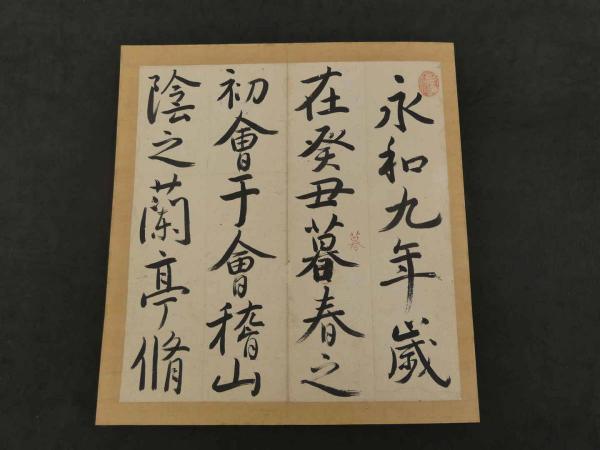 永和九年歲
在癸丑暮春之
初會于會稽山
陰之蘭亭脩
暮